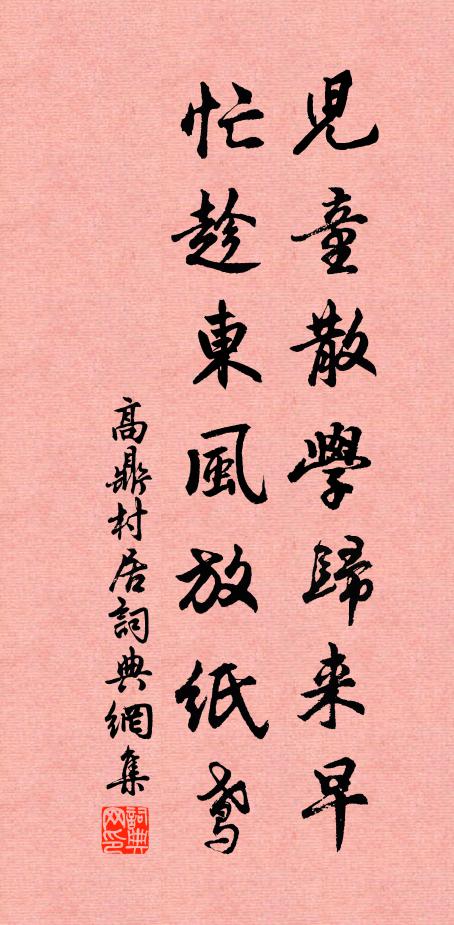 兒童散學歸来早
忙趁東風放紙鳶
高鼎村居詞典網集
詞典网印